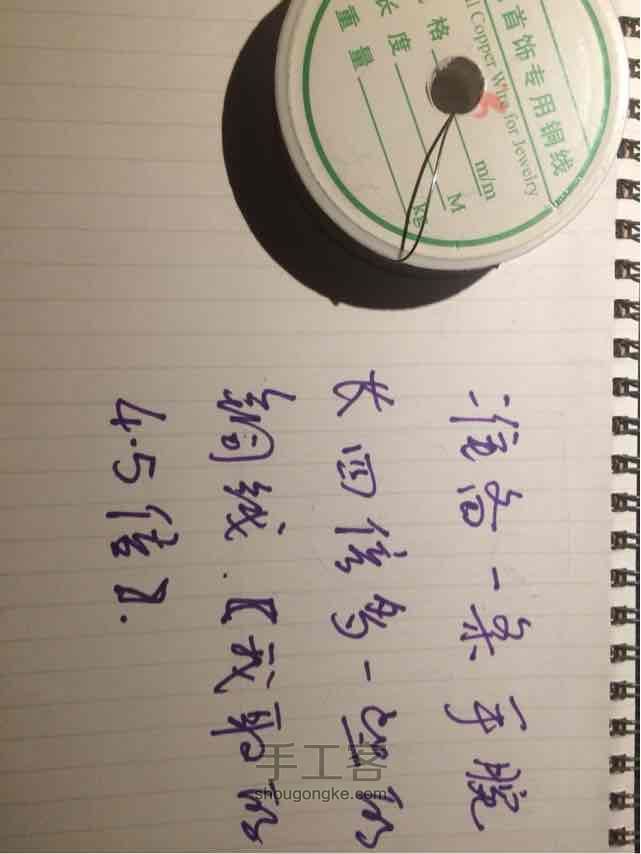 首饰专用铜线
Copper Wire for Jewelry
格 m/m
长度 M
重量 kg
准备一条手腕
长四倍多一点的
铜线.【我剪的
4.5倍】.
手工客
shougongke.com